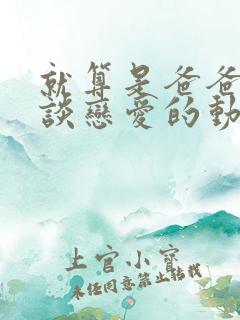 就算是爸爸
談戀愛的動
上官小寳
未經同意禁止轉載